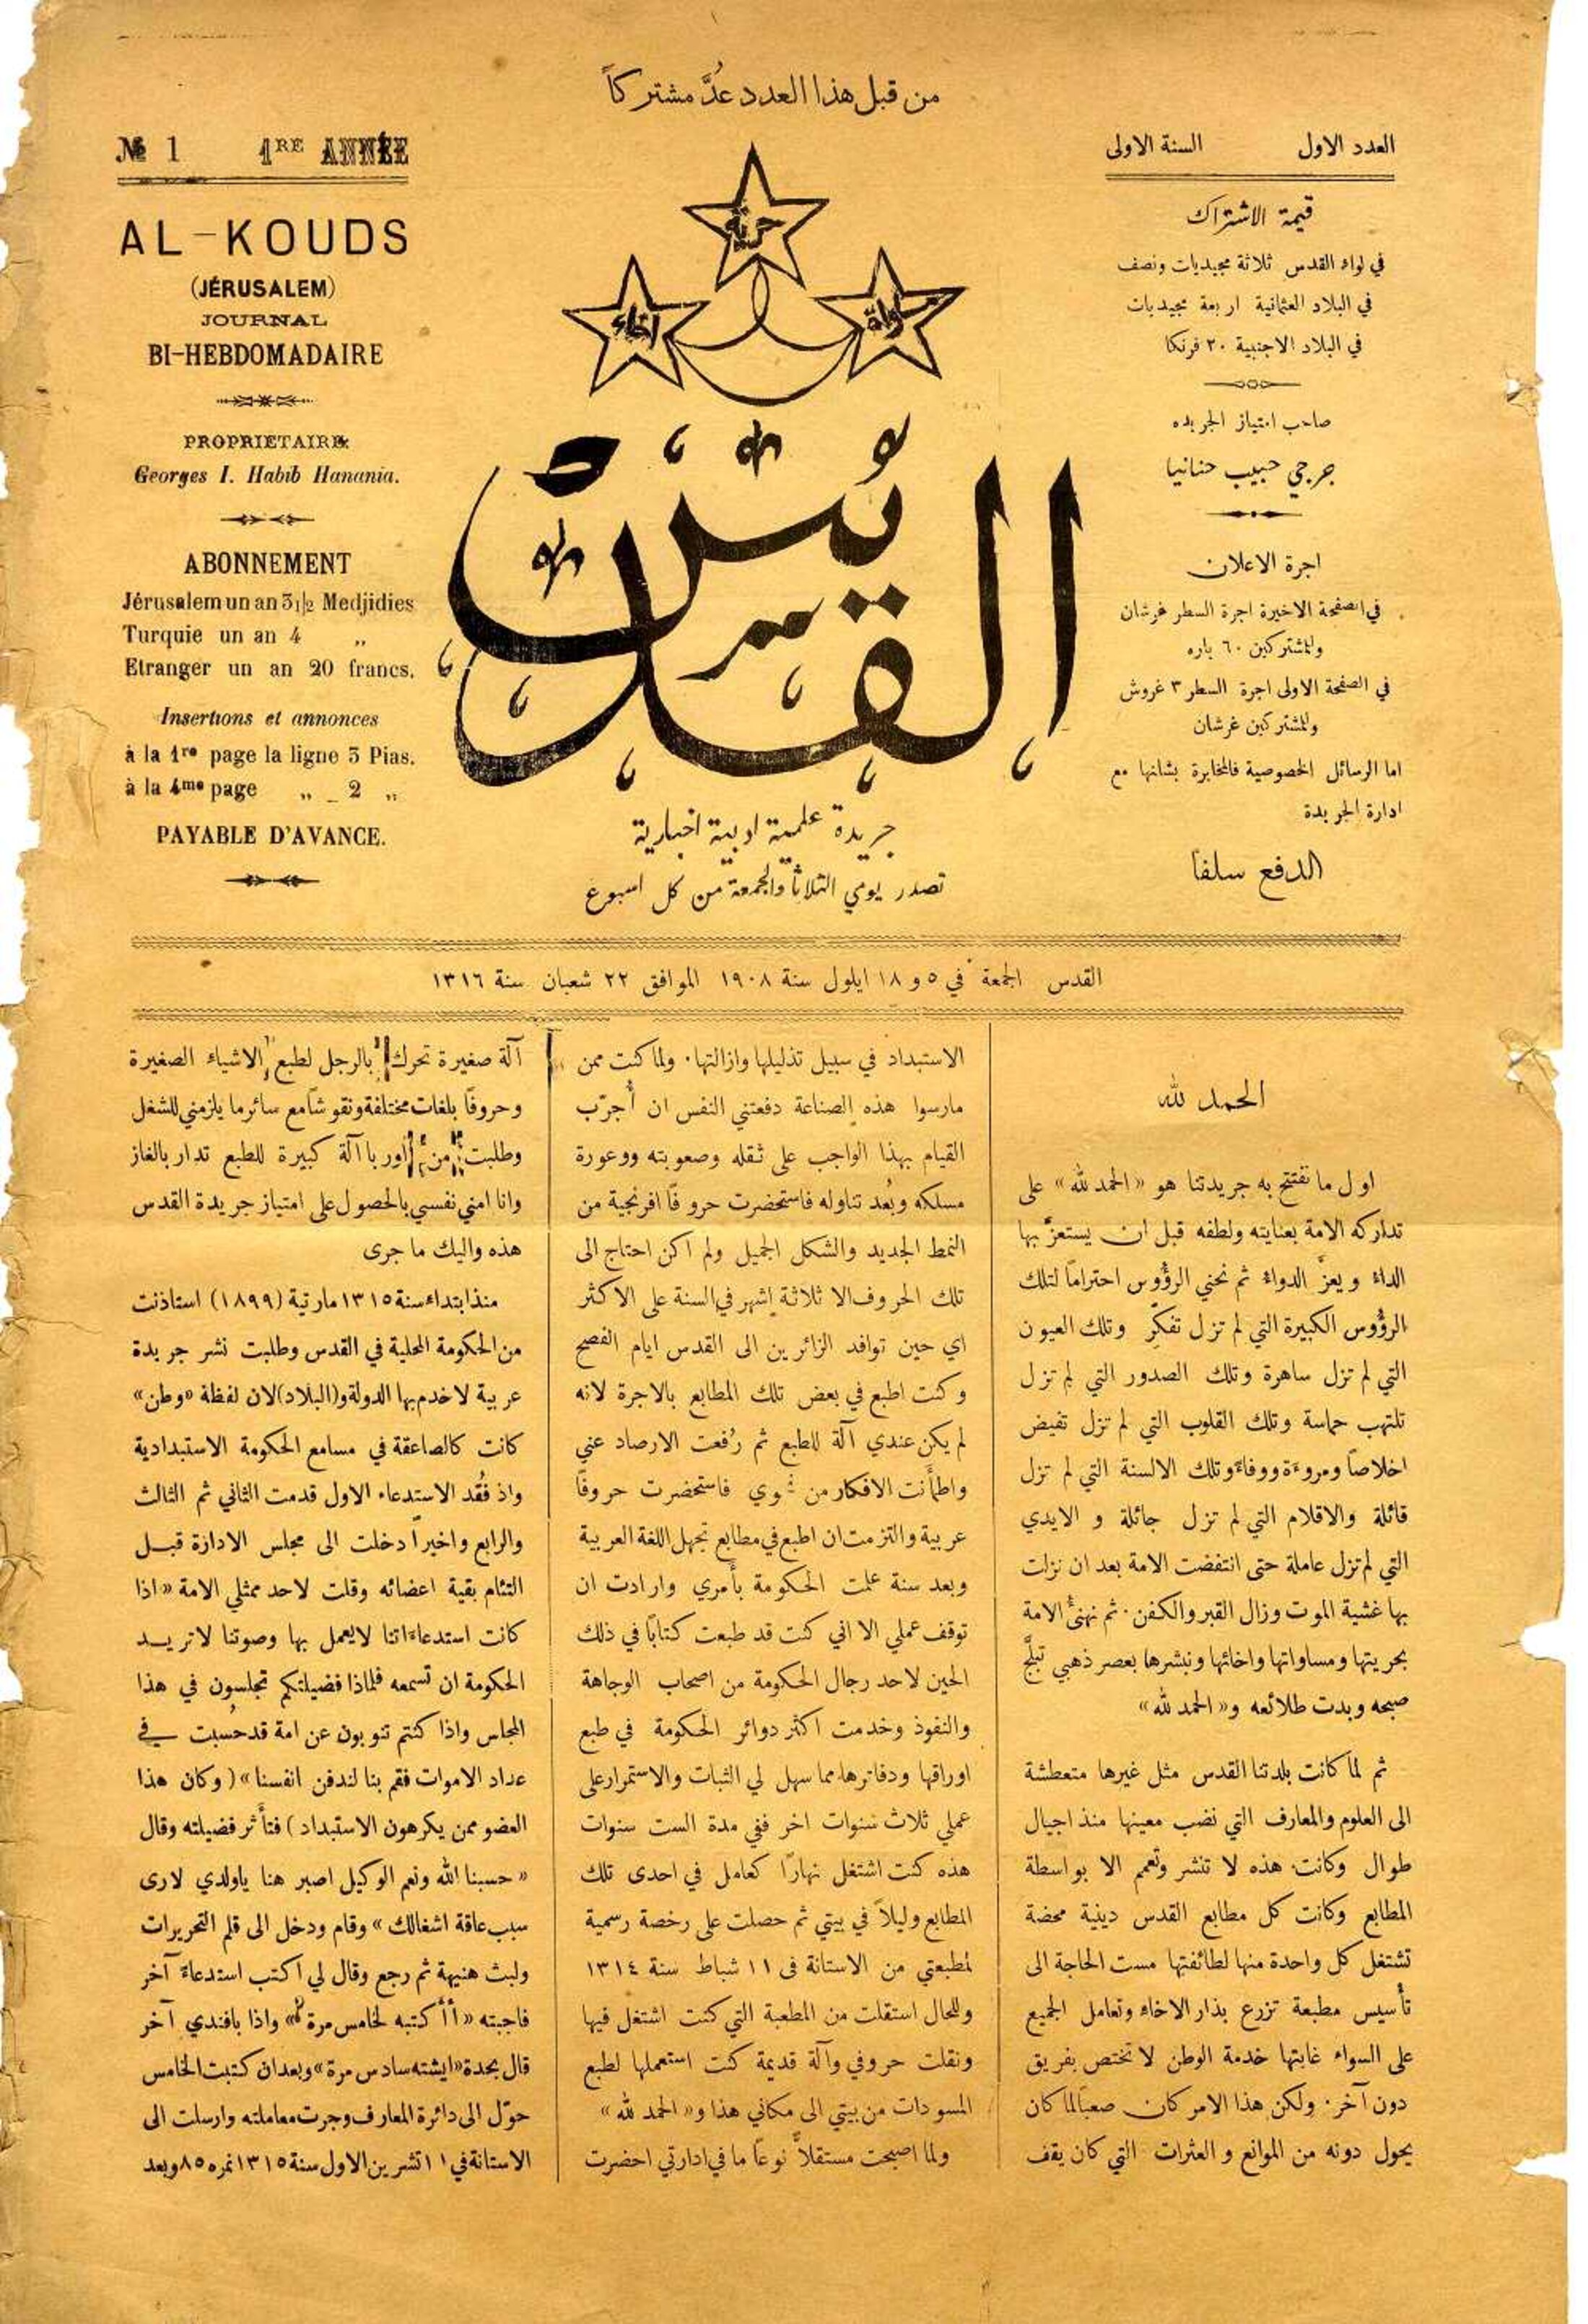 من قبل هذا العدد عُدَّ مشتركاً
№ 1 1RE ANNÉE
AL-KOUDS
(JÉRUSALEM)
JOURNAL
BI-HEBDOMADAIRE
PROPRIETAIRE
Georges I. Habib Hanania.
ABONNEMENT
Jérusalem un an 3 1/2 Medjidies
Turquie un an 4 ,,
Etranger un an 20 francs.
Insertions et annonces
à la 1re page la ligne 3 Pias.
à la 4me page ,, 2 ,,
PAYABLE D'AVANCE.
حرية
اخاء
مساواة
القدس الشريف
جريدة علمية ادبية اخبارية
تصدر يومي الثلاثا والجمعة من كل اسبوع
العدد الاول السنة الاولى
قيمة الاشتراك
في لواء القدس ثلاثة مجيديات ونصف
في البلاد العثمانية اربعة مجيديات
في البلاد الاجنبية ٢٠ فرنكا
صاحب امتياز الجريده
جرجي حبيب حنانيا
اجرة الاعلان
في الصفحة الاخيرة اجرة السطر غرشان
وللمشتركين ٦٠ باره
في الصفحة الاولى اجرة السطر ٣ غروش
وللمشتركين غرشان
اما الرسائل الخصوصية فالمخابرة بشانها مع
ادارة الجريدة
الدفع سلفا
القدس الجمعة في ٥ و ١٨ ايلول سنة ١٩٠٨ الموافق ٢٢ شعبان سنة ١٣١٦
الحمد لله
اول ما نفتتح به جريدتنا هو «الحمد لله» على
تداركه الامة بعنايته ولطفه قبل ان يستعزَّ بها
الداء ويعزَّ الدواء ثم نحني الرؤُوس احتراماً لتلك
الرؤُوس الكبيرة التي لم تزل تفكرّ وتلك العيون
التي لم تزل ساهرة وتلك الصدور التي لم تزل
تلتهب حماسة وتلك القلوب التي لم تزل تفيض
اخلاصاً ومروءة ووفاءً وتلك الالسنة التي لم تزل
قائلة والاقلام التي لم تزل جائلة و الايدي
التي لم تزل عاملة حتى انتفضت الامة بعد ان نزلت
بها غشية الموت وزال القبر والكفن. ثم نهنئُ الامة
بحريتها ومساواتها واخائها ونبشرها بعصر ذهبي تبلَّج
صبحه وبدت طلائعه و«الحمد لله»
ثم لما كانت بلدتنا القدس مثل غيرها متعطشة
الى العلوم والمعارف التي نضب معينها منذ اجيال
طوال وكانت هذه لا تنشر وتعمم الا بواسطة
المطابع وكانت كل مطابع القدس دينية محضة
تشتغل كل واحدة منها لطائفتها مست الحاجة الى
تأسيس مطبعة تزرع بذار الاخاء وتعامل الجميع
على السواء غايتها خدمة الوطن لا تختص بفريق
دون آخر. ولكن هذا الامر كان صعباً لما كان
يحول دونه من الموانع و العثرات التي كان يقف
الاستبداد في سبيل تذليلها وازالتها. ولما كنت ممن
مارسوا هذه الصناعة دفعتني النفس ان أُجرّب
القيام بهذا الواجب على ثقله وصعوبته ووعورة
مسلكه وبُعد تناوله فاستحضرت حروفاً افرنجية من
النمط الجديد والشكل الجميل ولم اكن احتاج الى
تلك الحروف الا ثلاثة اشهر في السنة على الاكثر
اي حين توافد الزائرين الى القدس ايام الفصح
وكنت اطبع في بعض تلك المطابع بالاجرة لانه
لم يكن عندي آلة للطبع ثم رُفعت الارصاد عني
واطمأَنت الافكار من نحوي فاستحضرت حروفاً
عربية والتزمت ان اطبع في مطابع تجهل اللغة العربية
وبعد سنة علمت الحكومة بأَمري وارادت ان
توقف عملي الا اني كنت قد طبعت كتاباً في ذلك
الحين لاحد رجال الحكومة من اصحاب الوجاهة
والنفوذ وخدمت اكثر دوائر الحكومة في طبع
اوراقها ودفاترها مما سهل لي الثبات والاستمرار على
عملي ثلاث سنوات اخر ففي مدة الست سنوات
هذه كنت اشتغل نهاراً كعامل في احدى تلك
المطابع وليلاً في بيتي ثم حصلت على رخصة رسمية
لمطبعتي من الاستانة في ١١ شباط سنة ١٣١٤
وللحال استقلت من المطعبة التي كنت اشتغل فيها
ونقلت حروفي وآلة قديمة كنت استعملها لطبع
المسودات من بيتي الى مكاني هذا و«الحمد لله»
ولما اصبحت مستقلاً نوعاً ما في ادارتي احضرت
آلة صغيرة تحرك بالرجل لطبع الاشياء الصغيرة
وحروفاً بلغات مختلفة ونقوشاً مع سائر ما يلزمني للشغل
وطلبت من اوربا آلة كبيرة للطبع تدار بالغاز
وانا امني نفسي بالحصول على امتياز جريدة القدس
هذه واليك ما جرى
منذ ابتداء سنة ١٣١٥ مارتية (١٨٩٩) استاذنت
من الحكومة المحلية في القدس وطلبت نشر جريدة
عربية لاخدم بها الدولة و(البلاد) لان لفظة «وطن»
كانت كالصاعقة في مسامع الحكومة الاستبدادية
واذ فُقد الاستدعاء الاول قدمت الثاني ثم الثالث
والرابع واخيراً دخلت الى مجلس الادارة قبل
التئام بقية اعضائه وقلت لاحد ممثلي الامة «اذا
كانت استدعاءاتنا لايعمل بها وصوتنا لاتريد
الحكومة ان تسمعه فلماذا فضيلتكم تجلسون في هذا
المجلس واذا كنتم تنوبون عن امة قد حُسبت في
عداد الاموات فقم بنا لندفن انفسنا» (وكان هذا
العضو ممن يكرهون الاستبداد) فتأَثر فضيلته وقال
«حسبنا الله ونعم الوكيل اصبر هنا ياولدي لارى
سبب عاقة اشغالك» وقام ودخل الى قلم التحريرات
ولبث هنيهة ثم رجع وقال لي اكتب استدعاءً آخر
فاجبته «أَأَكتبه لخامس مرة؟» واذا بافندي آخر
قال بحدة «ايشته سادس مرة» وبعد ان كتبت الخامس
حوّل الى دائرة المعارف وجرت معاملته وارسلت الى
الاستانة في ١١ تشرين الاول سنة ١٣١٥ نمره ٨٥ وبعد